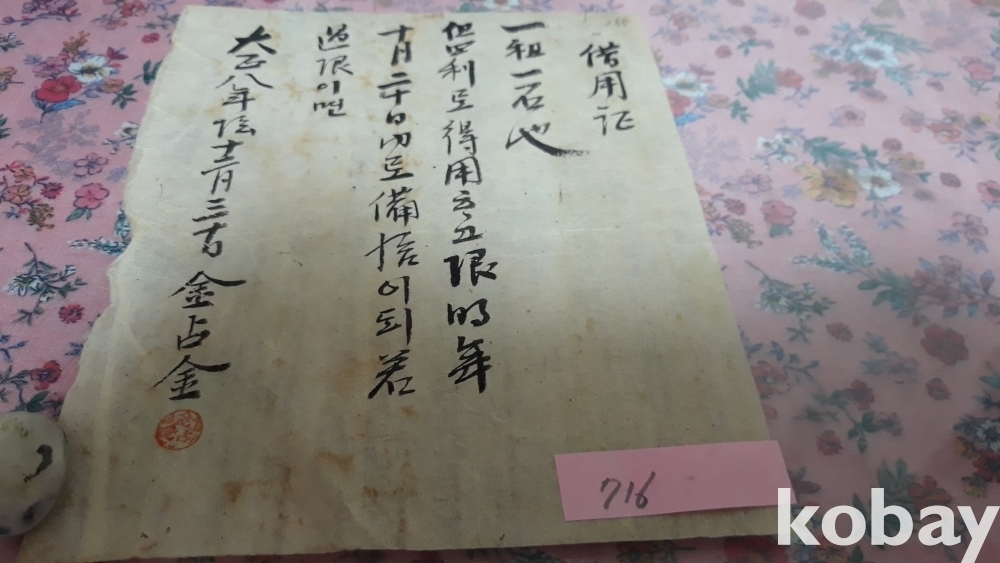 借用证
一租一石也
但四利로得用 限明年
十月二十日内로備捨이되若
過限이면
大正八年陰十二月三十日 金占金
716
kobay